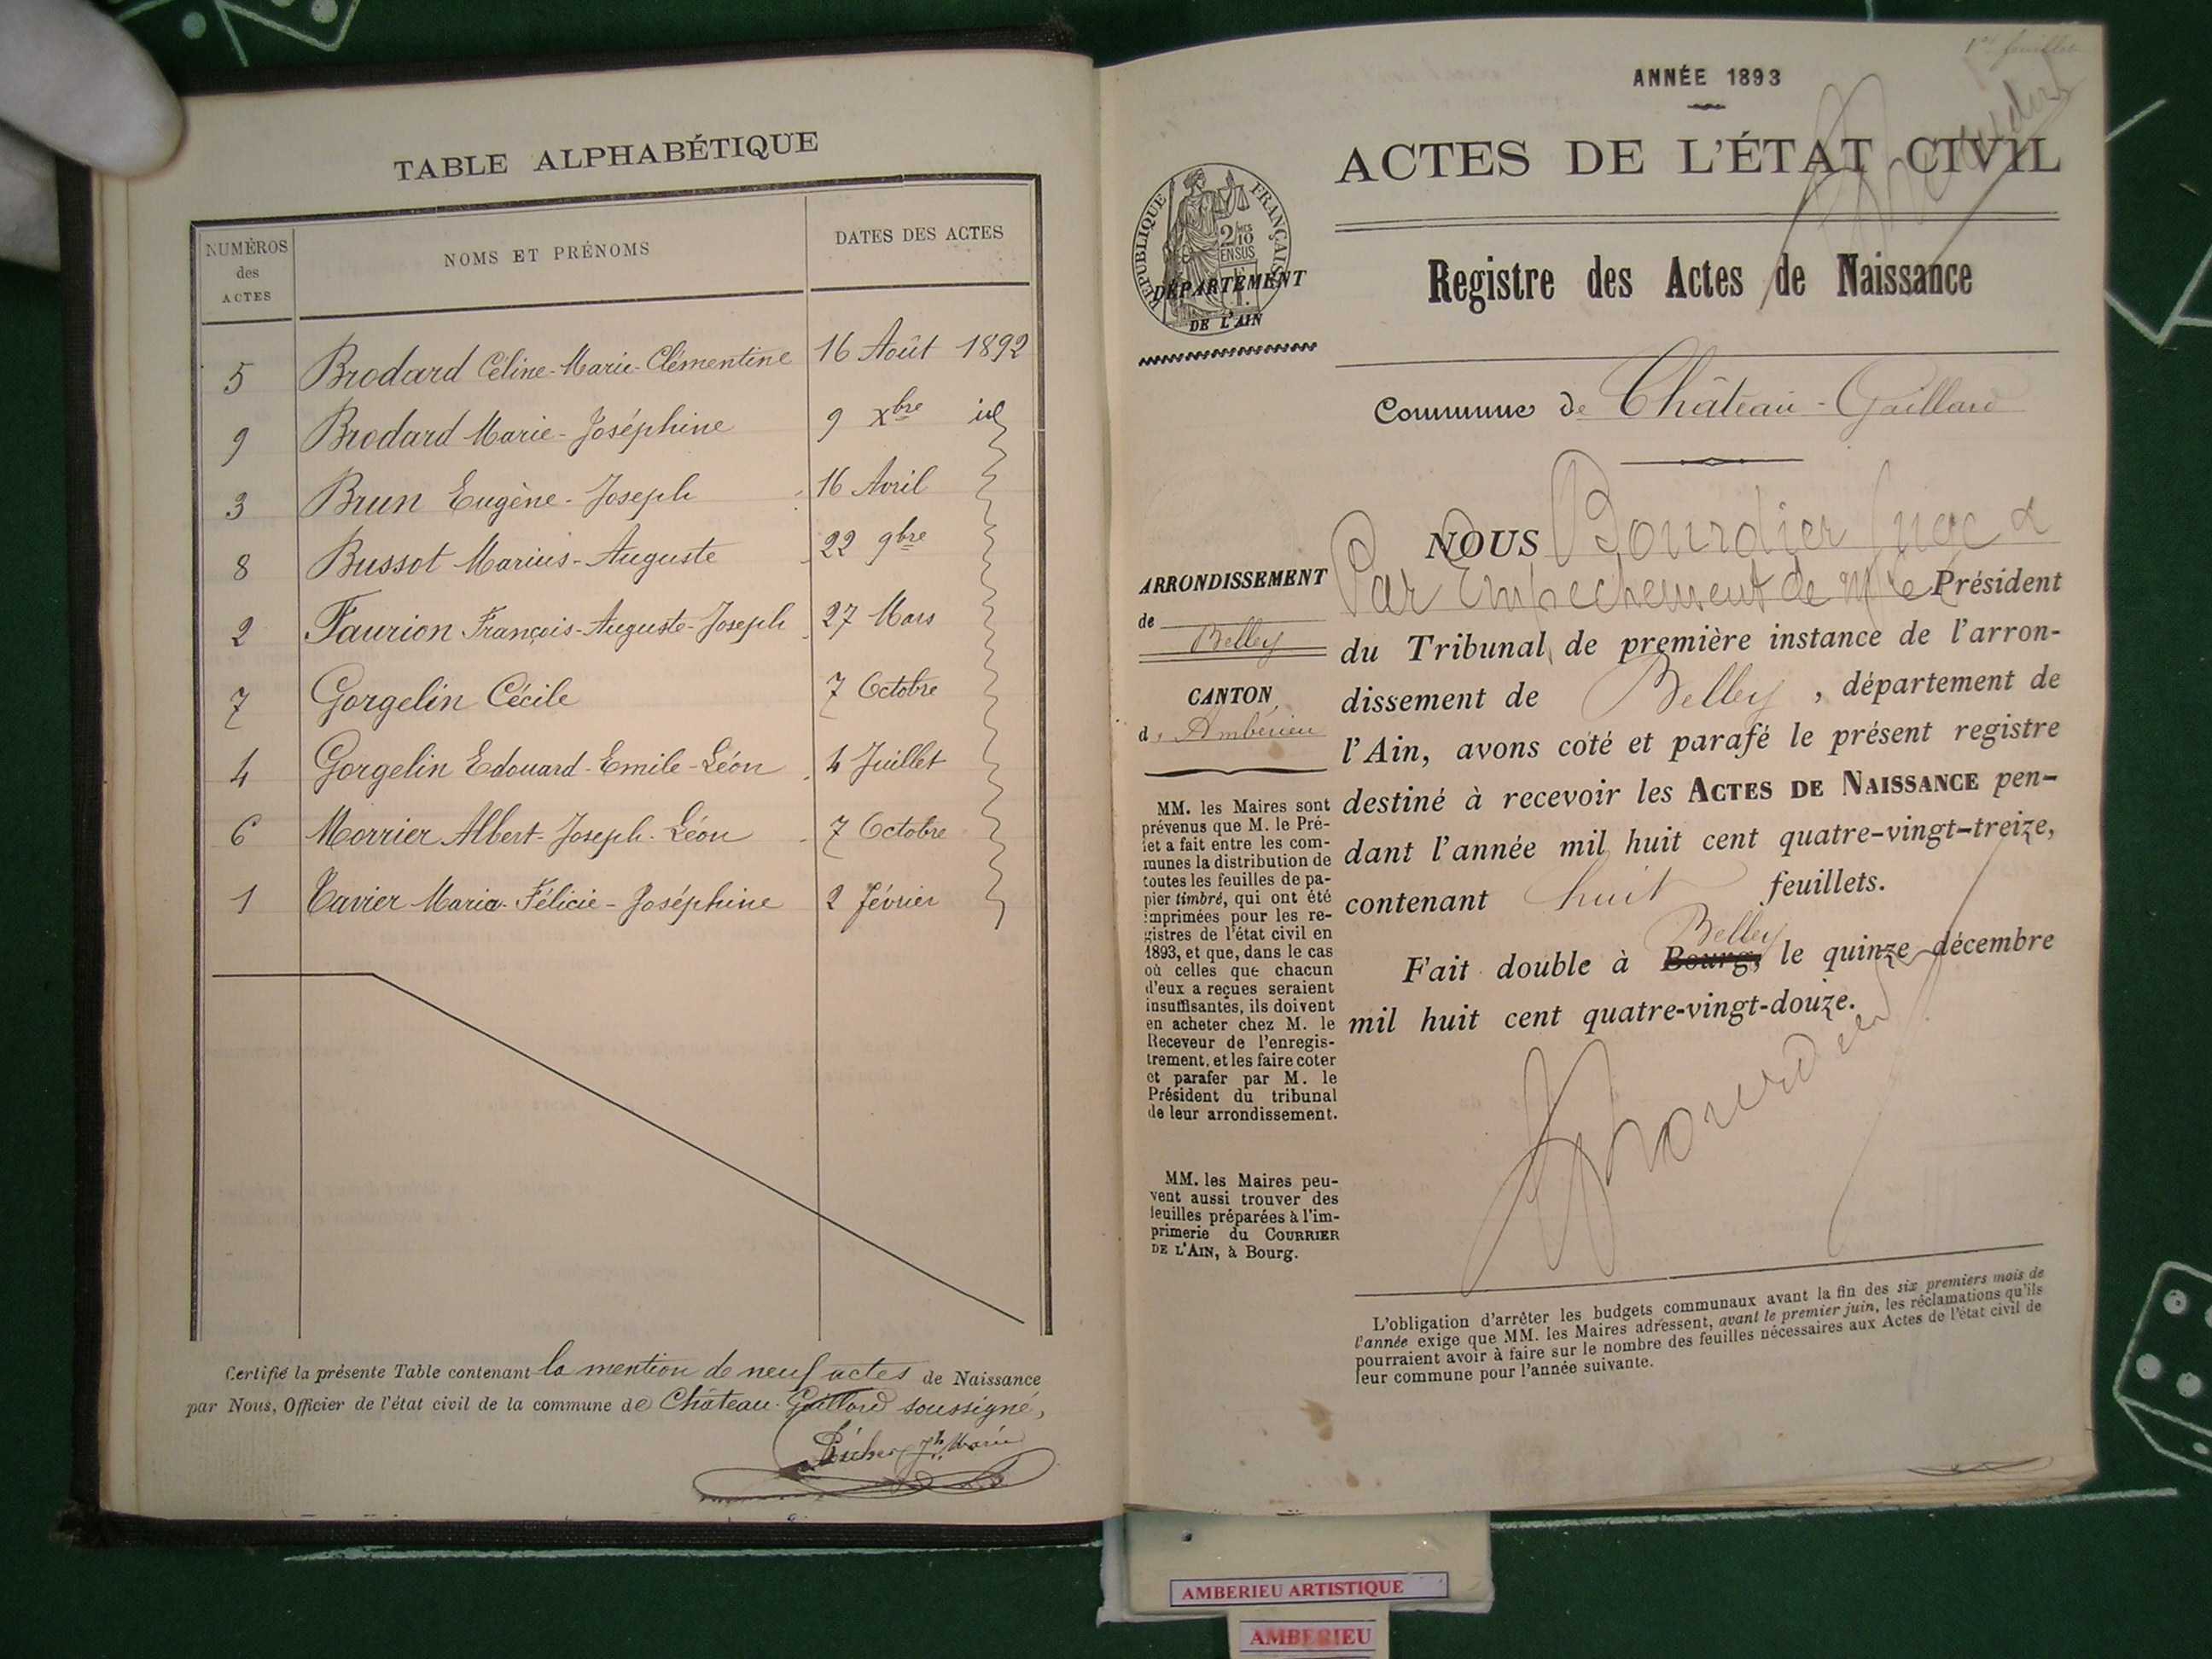 TABLE ALPHABÉTIQUE
NUMÉROS des ACTES NOMS ET PRÉNOMS DATES DES ACTES
5 Brodard Céline-Marie-Clémentine 16 Août 1892
9 Brodard Marie-Joséphine 9 Xbre id
3 Brun Eugène-Joseph 16 Avril
8 Bussot Marius-Auguste 22 9bre
2 Faurion François-Auguste-Joseph 27 Mars
7 Gorgelin Cécile 7 Octobre
4 Gorgelin Edouard-Emile-Léon 4 Juillet
6 Morrier Albert-Joseph-Léon 7 Octobre
1 Tavier Maria-Félicie-Joséphine 2 Février
Certifié la présente Table contenant la mention de neuf actes de Naissance
par Nous, Officier de l'état civil de la commune de Château-Gaillard soussigné,
1er feuillet
ANNÉE 1893
ACTES DE L'ÉTAT CIVIL
RÉPUBLIQUE FRANÇAISE
2/10 EN SUS
DÉPARTEMENT
DE L'AIN
Registre des Actes de Naissance
Commune de Château-Gaillard
ARRONDISSEMENT
de Belley
CANTON
d'Ambérieu
MM. les Maires sont
prévenus que M. le Pré-
fet a fait entre les com-
munes la distribution de
toutes les feuilles de pa-
pier timbré, qui ont été
imprimées pour les re-
gistres de l'état civil en
1893, et que, dans le cas
où celles que chacun
d'eux a reçues seraient
insuffisantes, ils doivent
en acheter chez M. le
Receveur de l'enregis-
trement, et les faire coter
et parafer par M. le
Président du tribunal
de leur arrondissement.
MM. les Maires peu-
vent aussi trouver des
feuilles préparées à l'im-
primerie du COURRIER
DE L'AIN, à Bourg.
NOUS Bourdier Juge
Par Empechement de Mr le Président
du Tribunal de première instance de l'arron-
dissement de Belley, département de
l'Ain, avons coté et parafé le présent registre
destiné à recevoir les ACTES DE NAISSANCE pen-
dant l'année mil huit cent quatre-vingt-treize,
contenant huit feuillets.
Belley
Fait double à Bourg, le quinze décembre
mil huit cent quatre-vingt-douze.
Bourdier
L'obligation d'arrêter les budgets communaux avant la fin des six premiers mois de
l'année exige que MM. les Maires adressent, avant le premier juin, les réclamations qu'ils
pourraient avoir à faire sur le nombre des feuilles nécessaires aux Actes de l'état civil de
leur commune pour l'année suivante.
AMBERIEU ARTISTIQUE
AMBERIEU